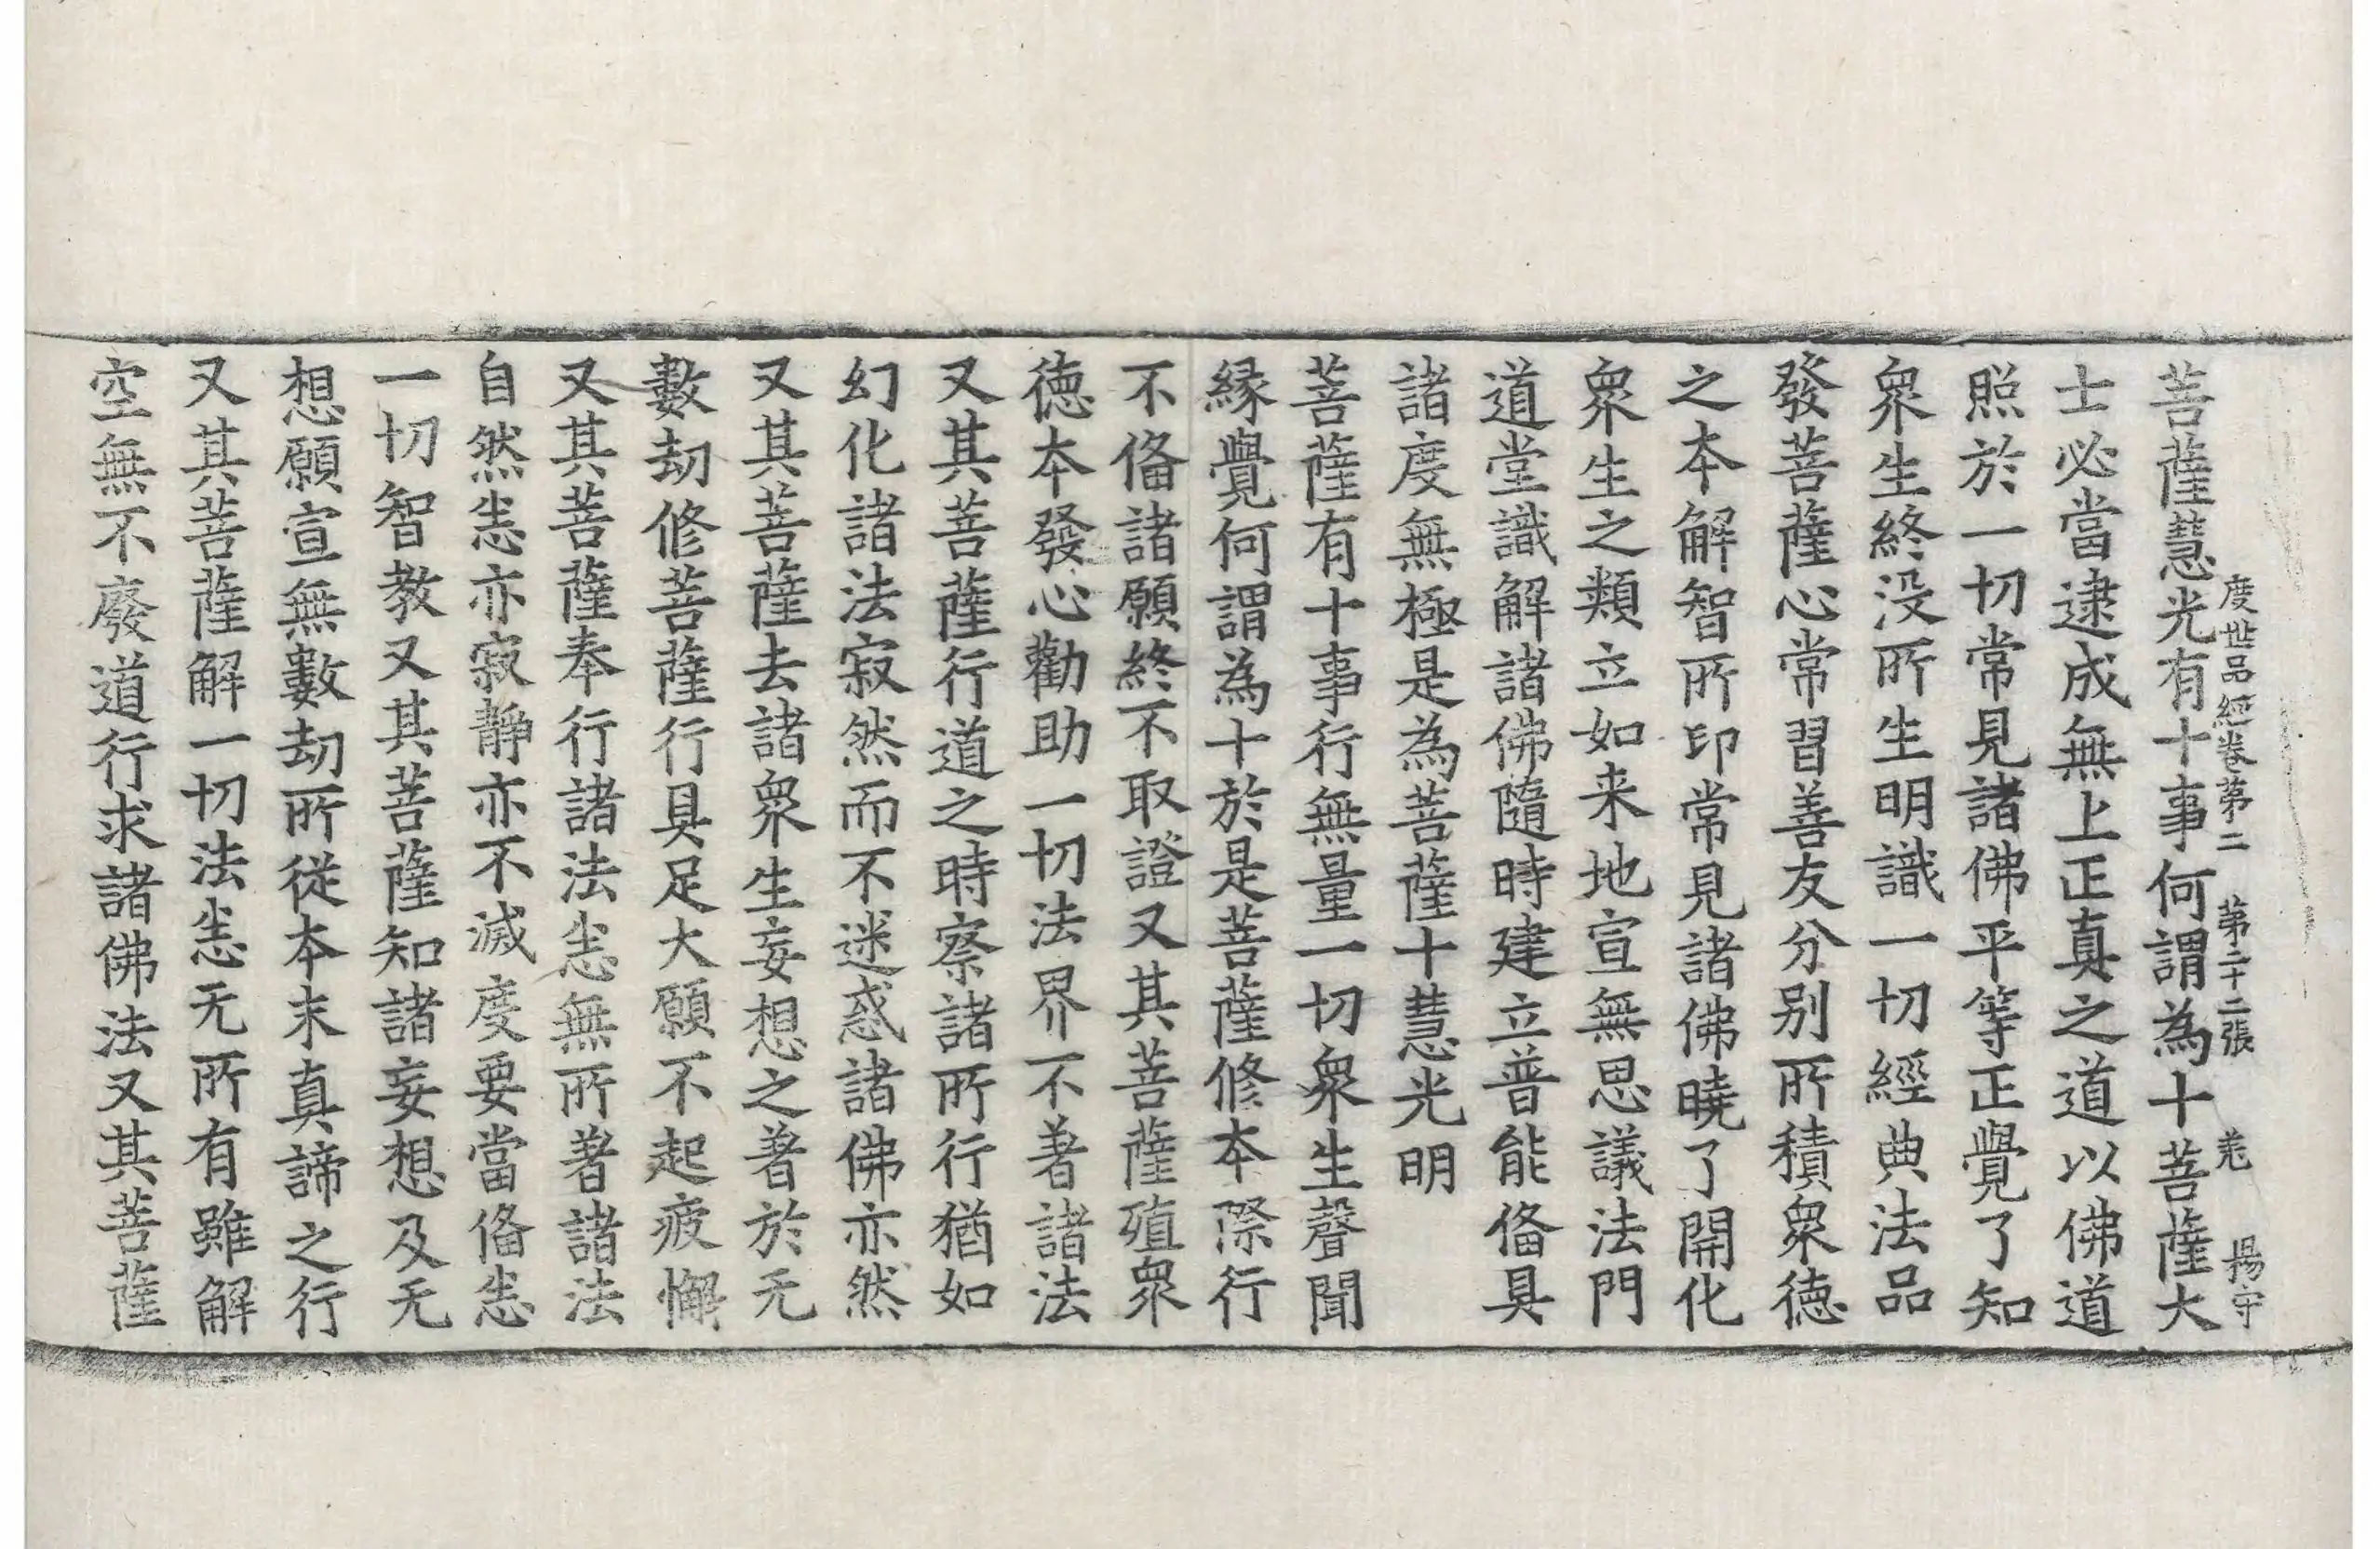 度世品經卷第二 第二十二張 羌 楊守
菩薩慧光有十事何謂為十菩薩大
士必當逮成無上正真之道以佛道
照於一切常見諸佛平等正覺了知
衆生終没所生明識一切經典法品
發菩薩心常習善友分别所積衆德
之本解智所印常見諸佛曉了開化
衆生之類立如来地宣無思議法門
道堂識解諸佛隨時建立普能俻具
諸度無極是為菩薩十慧光明
菩薩有十事行無量一切衆生聲聞
縁覺何謂為十於是菩薩修本際行
不俻諸願終不取證又其菩薩殖衆
徳本發心勸助一切法界不著諸法
又其菩薩行道之時察諸所行猶如
幻化諸法寂然而不迷惑諸佛亦然
又其菩薩去諸衆生妄想之著於无
數劫修菩薩行具足大願不起疲懈
又其菩薩奉行諸法恙無所著諸法
自然恙亦寂靜亦不滅度要當俻恙
一切智教又其菩薩知諸妄想及无
想願宣無數劫所從本末真諦之行
又其菩薩解一切法恙无所有雖解
空無不廢道行求諸佛法又其菩薩